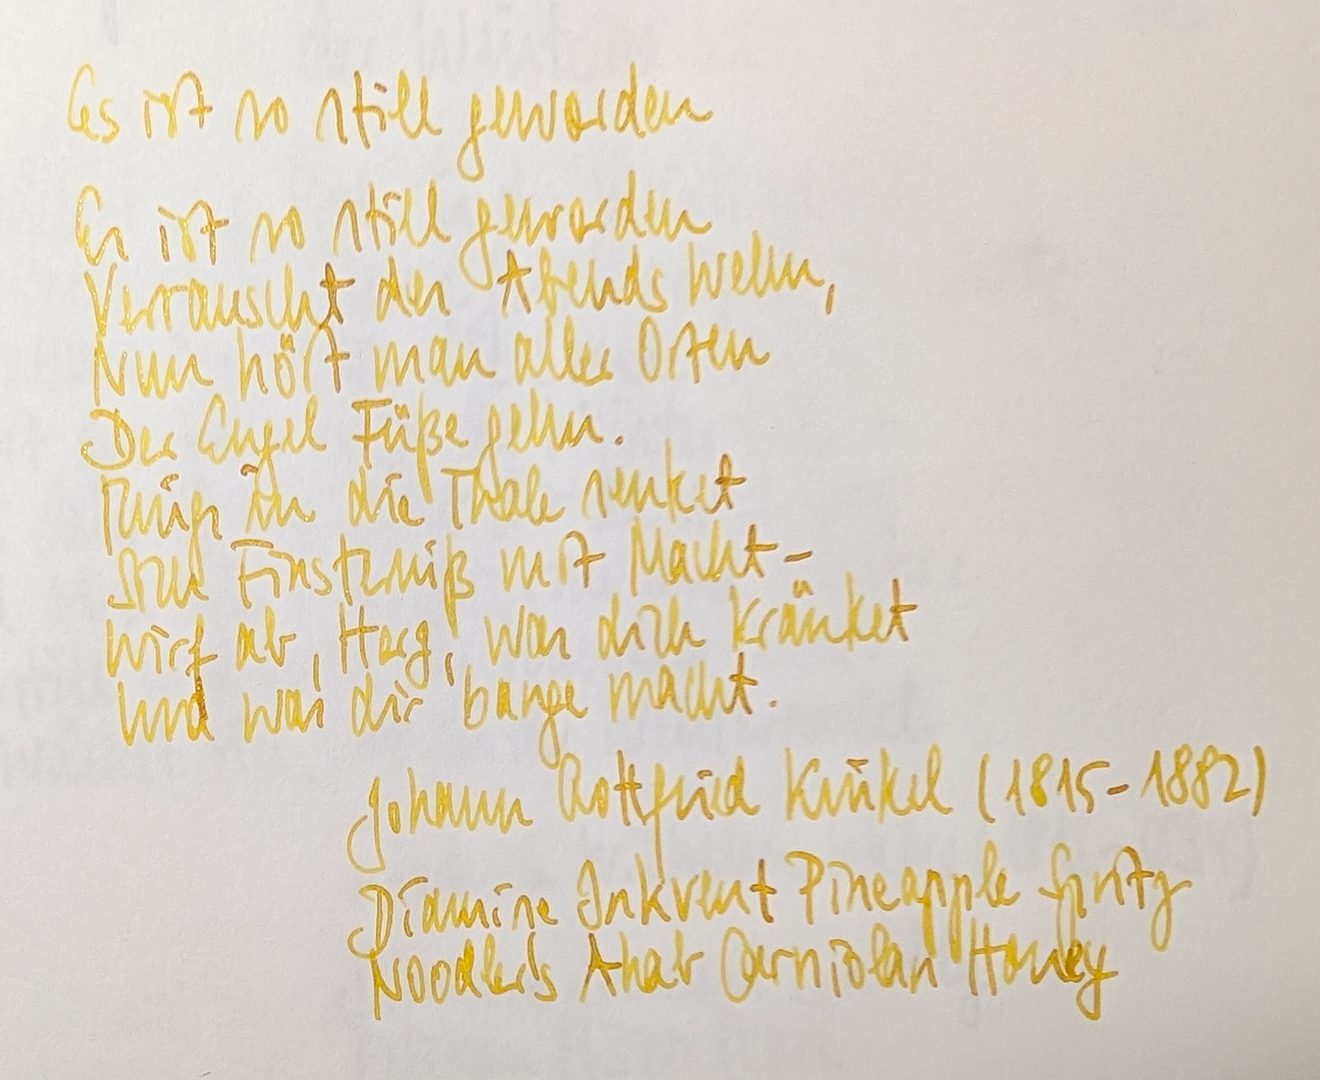 Es ist so still geworden
Es ist so still geworden
Verrauscht des Abends Wehn,
Nun hört man aller Orten
Der Engel Füße gehn.
Rings in die Thale senket
Sich Finsterniß mit Macht –
Wirf ab, Herz, was dich kränket
Und was dir bange macht.
Johann Gottfried Kinkel (1815-1882)
Diamine Inkvent Pineapple Spritz
Noodler's Ahab Carniolan Honey